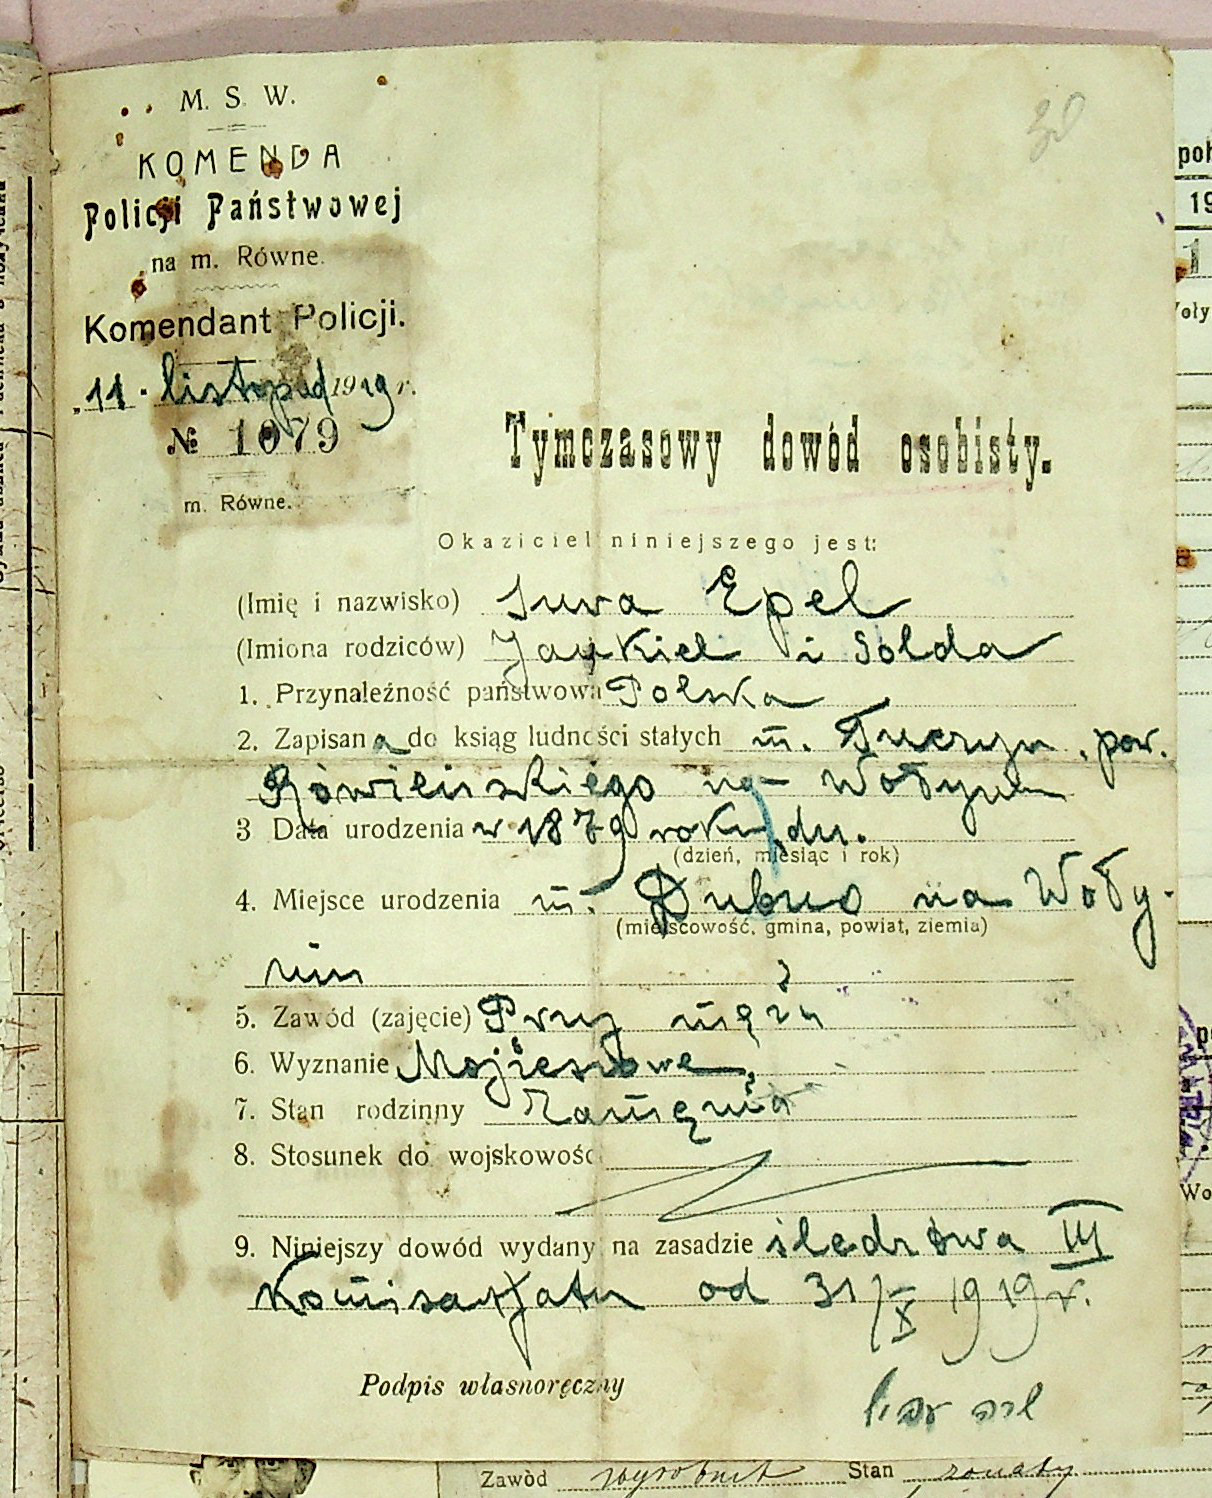 M. S. W.
KOMENDA
Policji Państwowej
na m. Równe.
Komendant Policji.
„11. listopad 1919 r.
№ 1079
m. Równe.
Tymczasowy dowód osobisty.
Okaziciel niniejszego jest:
(Imię i nazwisko) Sura Epel
(Imiona rodziców) Jankiel i Solda
1. Przynależność państwowa Polska
2. Zapisana do ksiąg ludności stałych m. Tuczyn, pow.
Rówieńskiego na Wołyniu
3 Data urodzenia w 1879 roku, dn.
(dzień, miesiąc i rok)
4. Miejsce urodzenia m. Dubno na Woły-
(miejscowość, gmina, powiat, ziemia)
niu
5. Zawód (zajęcie) Przy mężu
6. Wyznanie Mojżeszowe
7. Stan rodzinny Zamężna
8. Stosunek do wojskowośc
9. Niniejszy dowód wydany na zasadzie śledztwa III
Komisarjatu od 31/X 1919 r.
Podpis własnoręczny
Zawód wyrobnik Stan żonaty